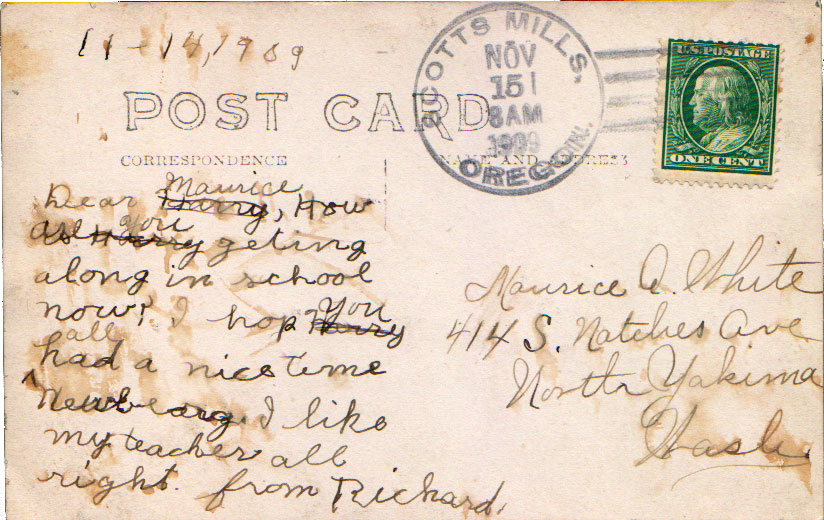 11-14, 1909
POST CARD
SCOTTS MILLS,
NOV
15
8 AM
1909
OREGON.
U.S. POSTAGE
ONE CENT
CORRESPONDENCE
NAME AND ADDRESS
Maurice
Dear Harry, How
you
are Harry geting
along in school
now? I hop Harry
You
all
had a nice teme
I like
my teacher all
right. from Richard.
Maurice A. White
414 S. Natches Ave
North Yakima
Wash.